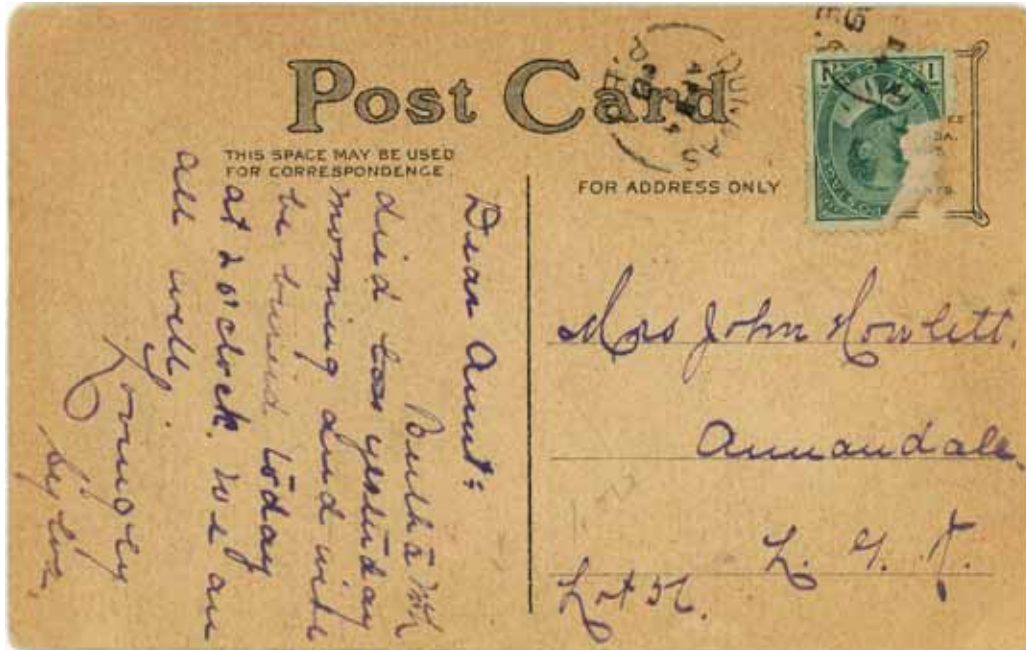 Post Card
THIS SPACE MAY BE USED
FOR CORRESPONDENCE.
FOR ADDRESS ONLY
DUNDAS
Dear Aunt:
died yesterday
morning and will
be buried today
at 2 o'clock. We are
all well.
Lovingly
Mrs John Howlett.
Annandale
Lot 56.